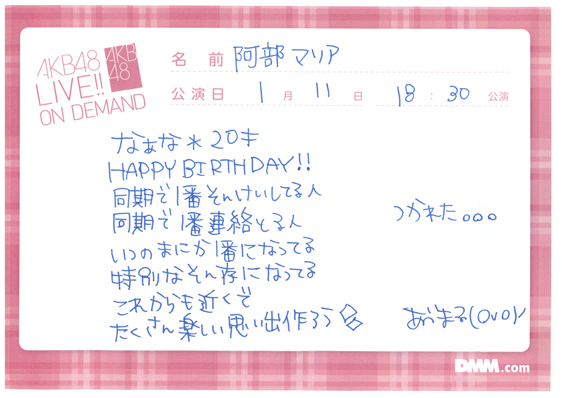 AKB48
LIVE!!
ON DEMAND
AKB
48
名前 阿部マリア
公演日 1月11日 18:30公演
なぁな*20才
HAPPY BIRTHDAY!!
同期で1番そんけいしてる人
同期で1番連絡とる人
いつのまにか1番になってる
特別なそん存になってる
これからも近くで
たくさん楽しい思い出作ろう
つかれた。。。
あぶまる(OvO)ノ
DMM.com